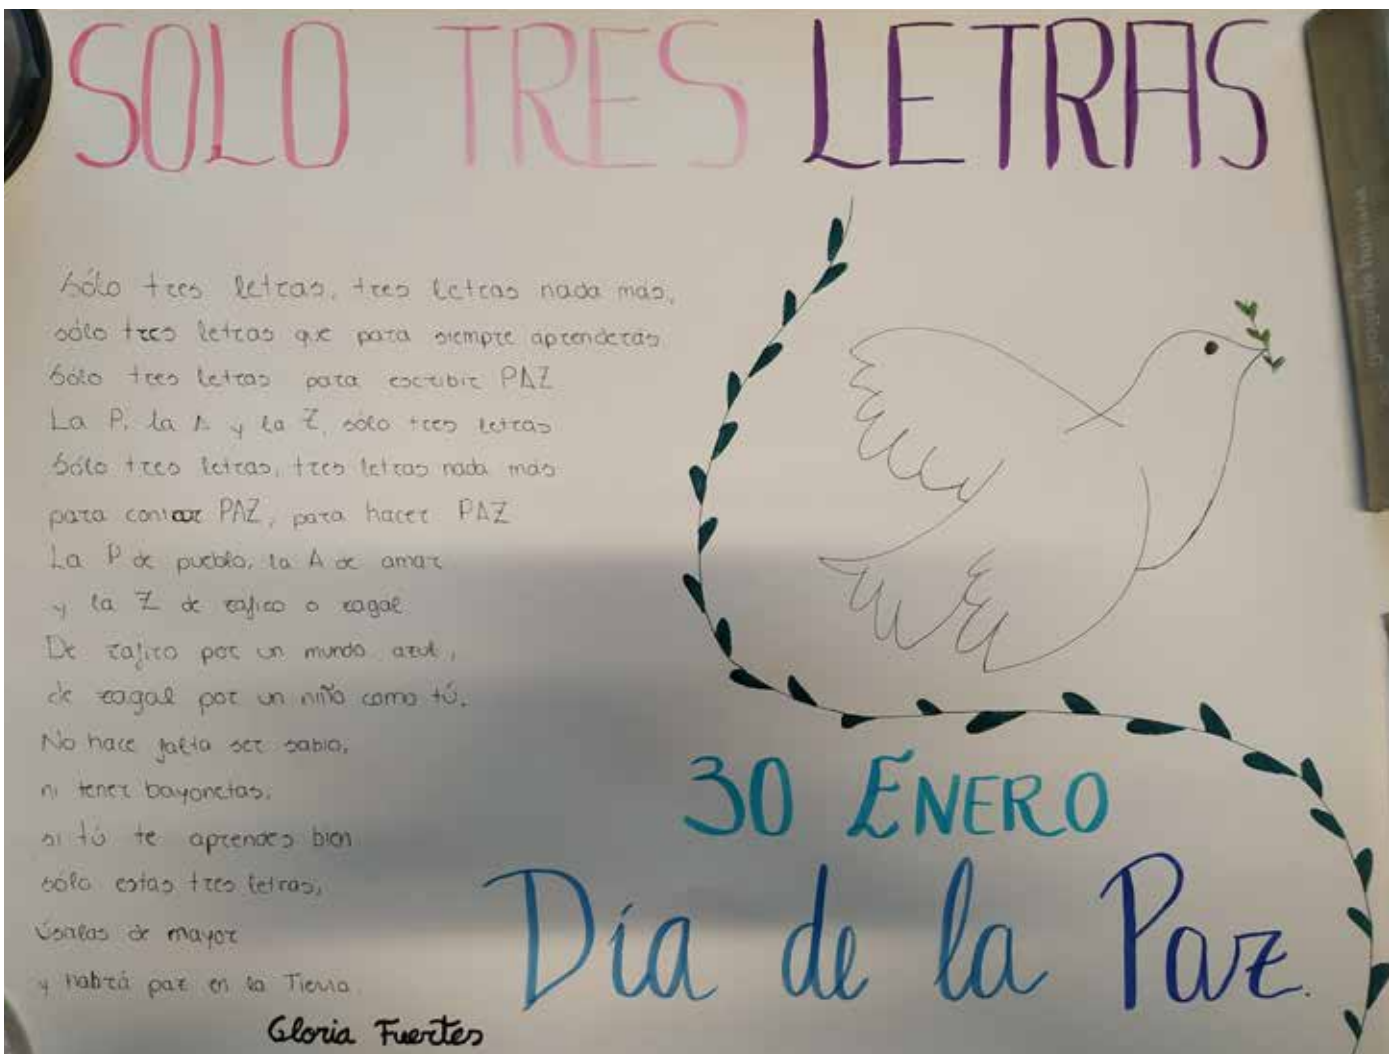 SOLO TRES LETRAS
Sólo tres letras, tres letras nada más,
sólo tres letras que para siempre aprenderás.
Sólo tres letras para escribir PAZ
La P, la A y la Z, sólo tres letras
Sólo tres letras, tres letras nada más
para cantar PAZ, para hacer PAZ
La P de pueblo, la A de amar
y la Z de zafiro o zagal
De zafiro por un mundo azul,
de zagal por un niño como tú.
No hace falta ser sabio,
ni tener bayonetas,
si tú te aprendes bien
sólo estas tres letras,
úsalas de mayor
y habrá paz en la Tierra.
Gloria Fuertes
30 ENERO
Día de la Paz.
geografía humana